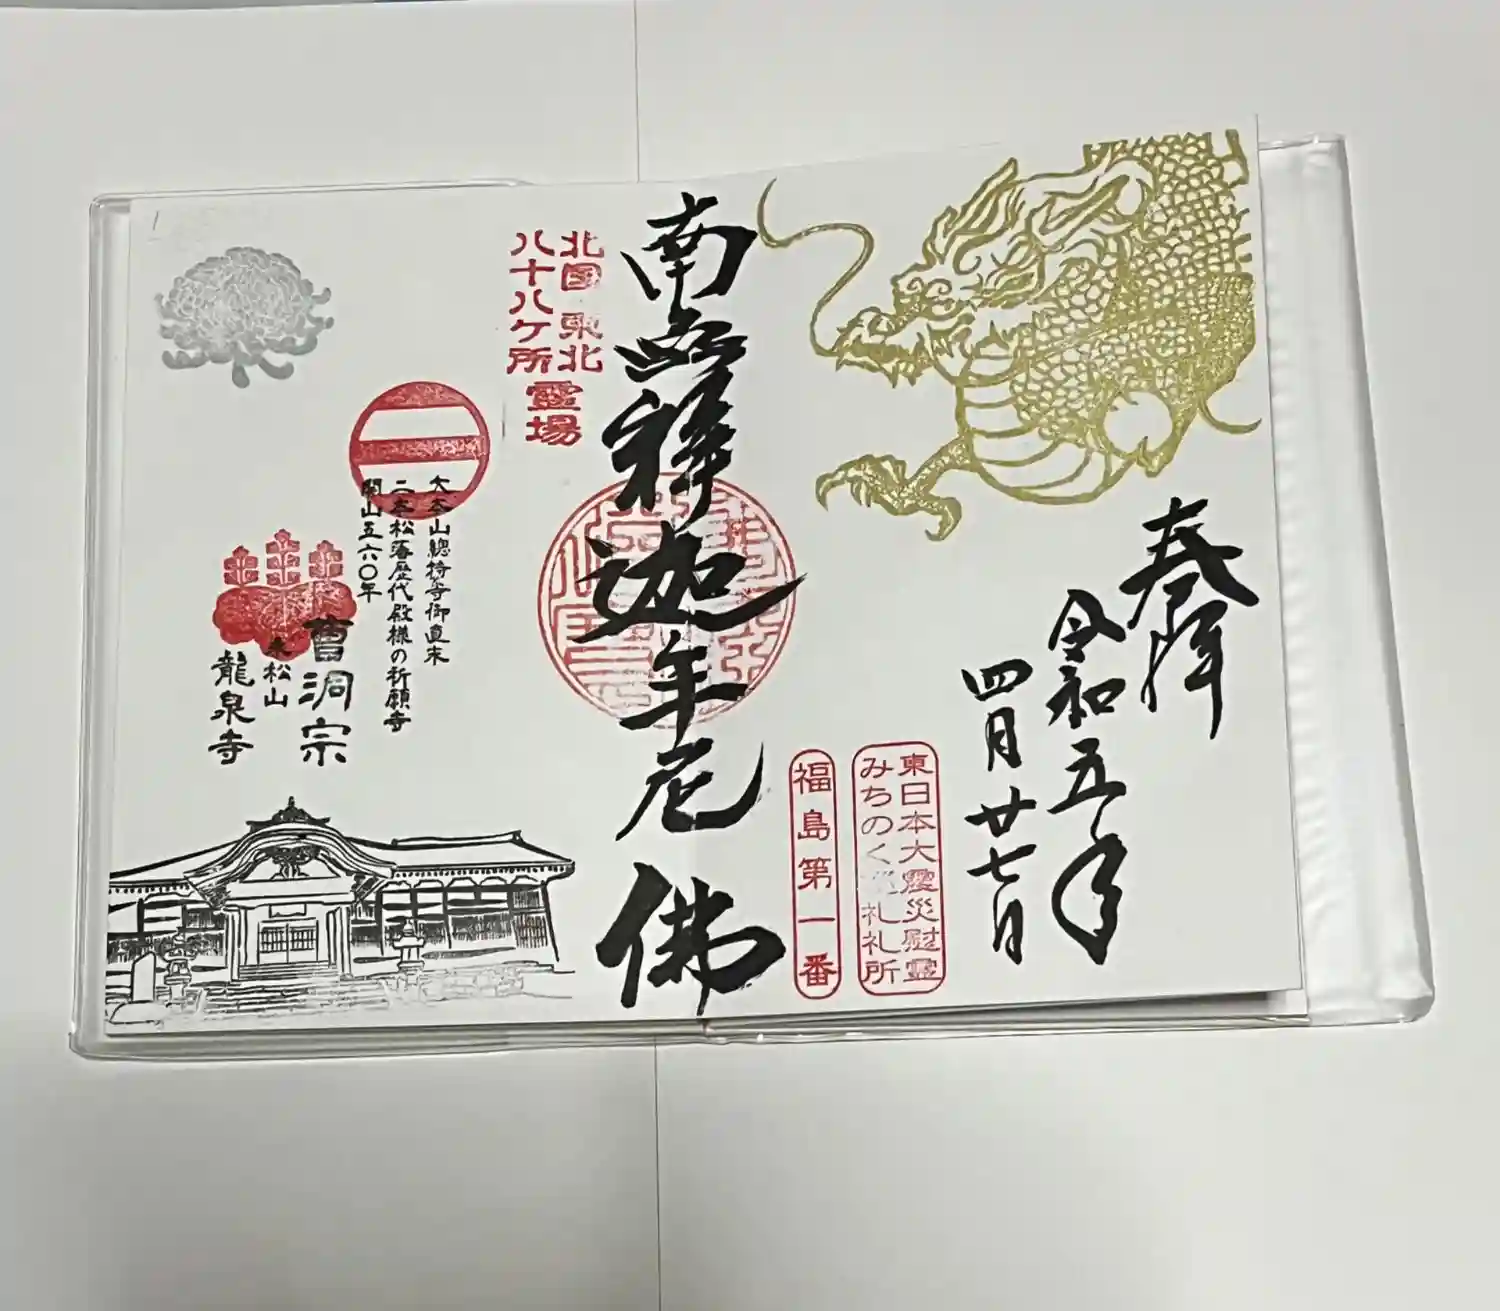 奉拝
令和五年
四月廿七日
東日本大震災慰霊
みちのく巡礼札所
福島第一番
南無釋迦牟尼佛
北国 東北
八十八ケ所
霊場
大本山總持寺御直末
二本松藩歴代殿様の祈願寺
開山五六〇年
曹洞宗
松山
龍泉寺